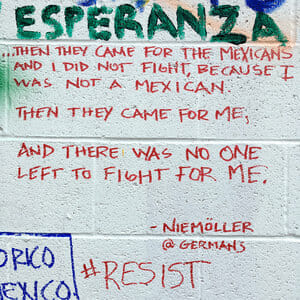 ESPERANZA
...THEN THEY CAME FOR THE MEXICANS
AND I DID NOT FIGHT, BECAUSE I
WAS NOT A MEXICAN.
THEN THEY CAME FOR ME,
AND THERE WAS NO ONE
LEFT TO FIGHT FOR ME.
- NIEMÖLLER
@GERMANS
#RESIST
ORICO
EXICO